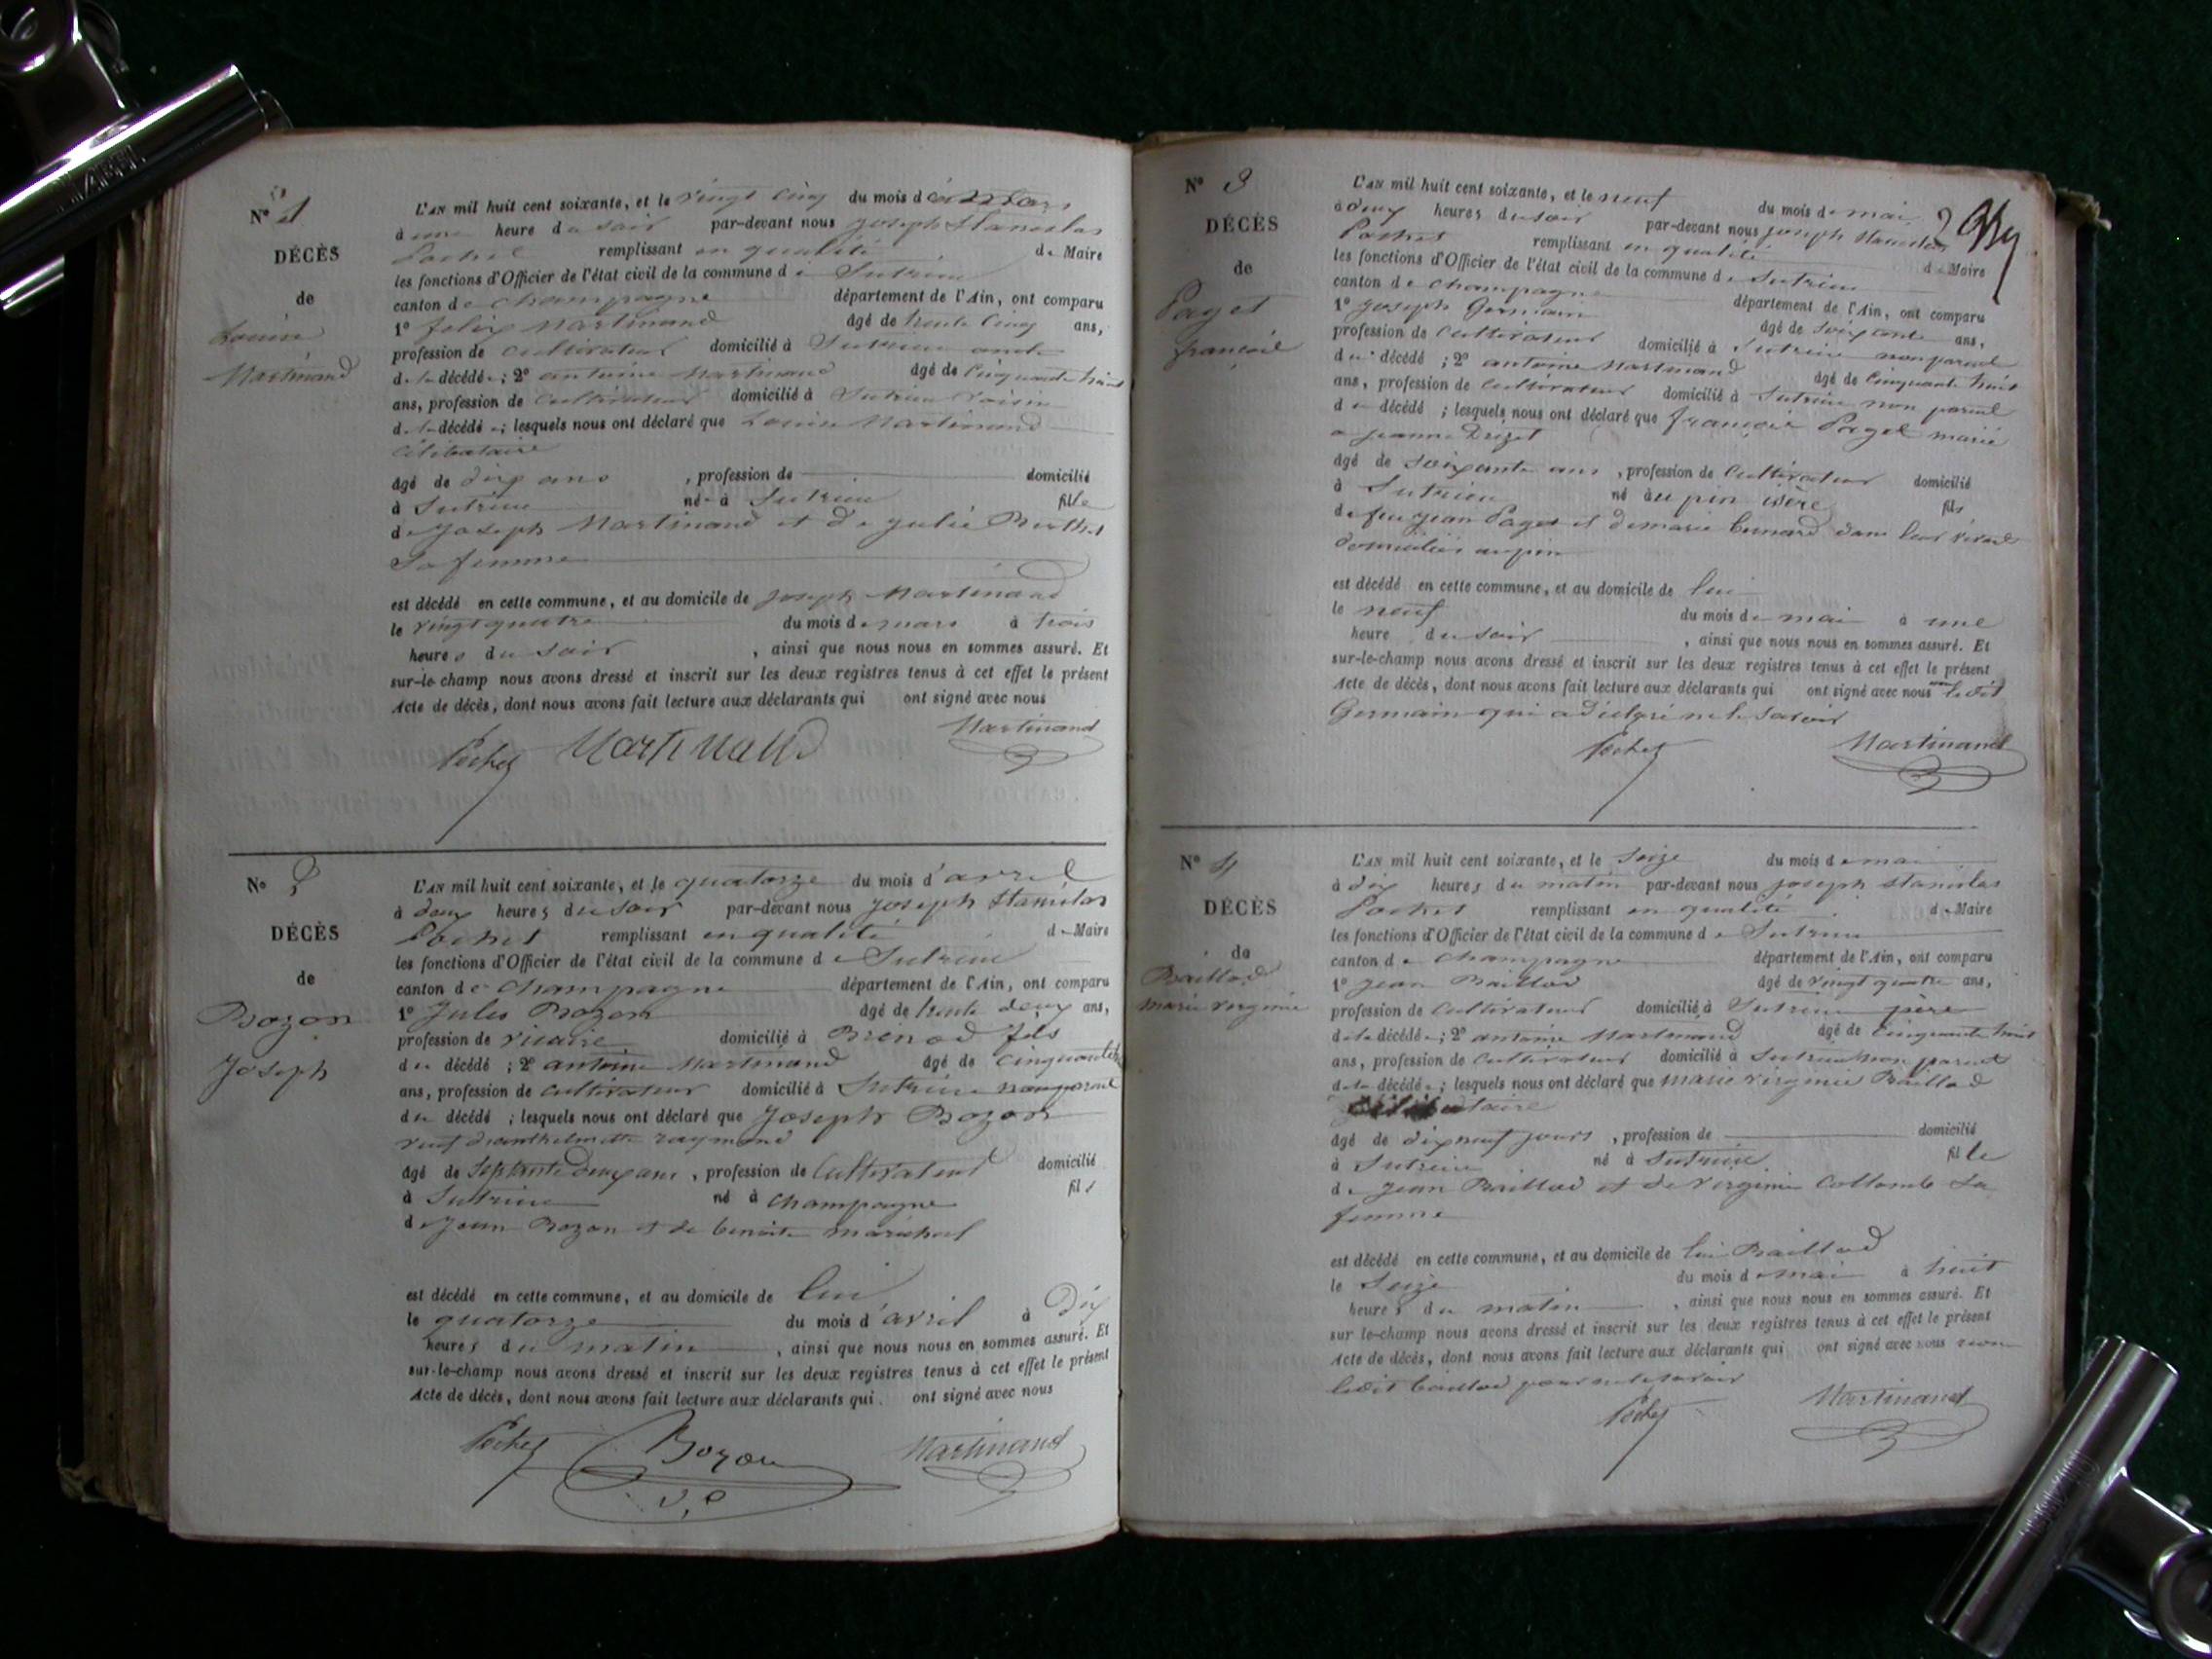 N° 1
DÉCÈS
de
Louise
Martinand
L'AN mil huit cent soixante, et le vingt cinq du mois de mars
à une heure du soir par-devant nous joseph Stanislas
Pochet remplissant en qualité de Maire
les fonctions d'Officier de l'état civil de la commune de Sutrieu
canton de champagne département de l'Ain, ont comparu
1° felix Martinand âgé de trente cinq ans,
profession de cultivateur domicilié à Sutrieu oncle
de la décédée; 2° antoine Martinand âgé de cinquante huit
ans, profession de cultivateur domicilié à Sutrieu voisin
de la décédée; lesquels nous ont déclaré que Louise Martinand
célibataire
âgé de dix ans, profession de domicilié
à Sutrieu né à Sutrieu fille
de Joseph Martinand et de julie Berthet
Sa femme
est décédé en cette commune, et au domicile de joseph Martinand
le vingt quatre du mois de mars à trois
heures du soir, ainsi que nous nous en sommes assuré. Et
sur-le-champ nous avons dressé et inscrit sur les deux registres tenus à cet effet le présent
Acte de décès, dont nous avons fait lecture aux déclarants qui ont signé avec nous
Pochet Martinand Martinand
N° 2
DÉCÈS
de
Bozon
Joseph
L'AN mil huit cent soixante, et le quatorze du mois d'avril
à deux heures du soir par-devant nous Joseph Stanislas
Pochet remplissant en qualité de Maire
les fonctions d'Officier de l'état civil de la commune de Sutrieu
canton de champagne département de l'Ain, ont comparu
1° Jules Bozon âgé de trente deux ans,
profession de vicaire domicilié à Brénod fils
du décédé; 2° antoine Martinand âgé de cinquante huit
ans, profession de cultivateur domicilié à Sutrieu non parent
du décédé; lesquels nous ont déclaré que Joseph Bozon
veuf d'anthelmette raymond
âgé de Septante deux ans, profession de Cultivateur domicilié
à Sutrieu né à champagne fils
de Jean Bozon et de benoite maréchal
est décédé en cette commune, et au domicile de lui
le quatorze du mois d'avril à Dix
heures du matin, ainsi que nous nous en sommes assuré. Et
sur-le-champ nous avons dressé et inscrit sur les deux registres tenus à cet effet le présent
Acte de décès, dont nous avons fait lecture aux déclarants qui ont signé avec nous
Pochet Bozon Martinand
v.
N° 3
DÉCÈS
de
Paget
françois
2
L'AN mil huit cent soixante, et le neuf du mois de mai
à deux heures du soir par-devant nous joseph Stanislas
Pochet remplissant en qualité de Maire
les fonctions d'Officier de l'état civil de la commune de Sutrieu
canton de champagne département de l'Ain, ont comparu
1° joseph Germain âgé de soixante ans,
profession de Cultivateur domicilié à Sutrieu non parent
du décédé; 2° antoine Martinand âgé de cinquante huit
ans, profession de Cultivateur domicilié à Sutrieu non parent
du décédé; lesquels nous ont déclaré que françois Paget marié
a jeanne Drizet
âgé de soixante ans, profession de cultivateur domicilié
à Sutrieu né au pin isère fils
de feu jean Paget et de marie bernard dans leur vivant
domiciliés au pin
est décédé en cette commune, et au domicile de lui
le neuf du mois de mai à une
heure du soir, ainsi que nous nous en sommes assuré. Et
sur-le-champ nous avons dressé et inscrit sur les deux registres tenus à cet effet le présent
Acte de décès, dont nous avons fait lecture aux déclarants qui ont signé avec nous non le dit
Germain qui a déclaré ne le savoir
Pochet Martinand
N° 4
DÉCÈS
de
Baillod
marie virginie
L'AN mil huit cent soixante, et le Seize du mois de mai
à dix heures du matin par-devant nous joseph stanislas
Pochet remplissant en qualité de Maire
les fonctions d'Officier de l'état civil de la commune de Sutrieu
canton de champagne département de l'Ain, ont comparu
1° jean Baillod âgé de vingt quatre ans,
profession de Cultivateur domicilié à Sutrieu père
de la décédée; 2° antoine Martinand âgé de cinquante huit
ans, profession de cultivateur domicilié à Sutrieu non parent
de la décédée; lesquels nous ont déclaré que marie virginie Baillod
célibataire
âgé de dix neuf jours, profession de domicilié
à Sutrieu né à Sutrieu fille
de jean Baillod et de virginie Collomb Sa
femme
est décédé en cette commune, et au domicile de lui Baillod
le Seize du mois de mai à huit
heures du matin, ainsi que nous nous en sommes assuré. Et
sur le-champ nous avons dressé et inscrit sur les deux registres tenus à cet effet le présent
Acte de décès, dont nous avons fait lecture aux déclarants qui ont signé avec nous non
ledit baillod pour ne le savoir
Pochet Martinand